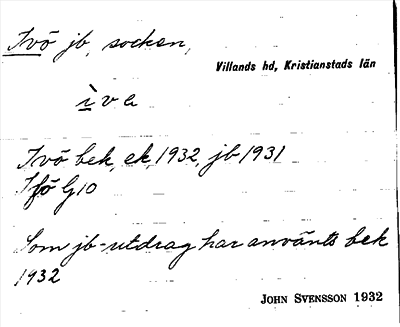 Ivö jb, socken,
Villands hd, Kristianstads län
ìva
Ivö bek, ek, 1932, jb 1931
Ifö G10
Som jb-utdrag har använts bek
1932
JOHN SVENSSON 1932